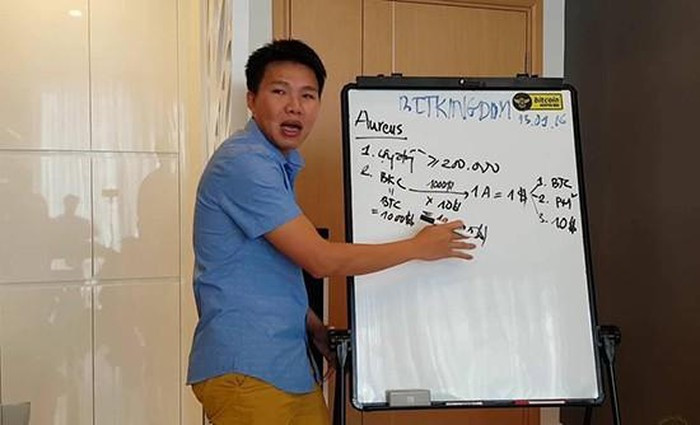 BITKINGDOM
bitcoin
15.01.16
Aureus
1. ≥ 200.000
2. BKC 1000$ 1A = 1$ 1. BTC
BTC × 10$ 2. PM
= 1000$ 3. 10$